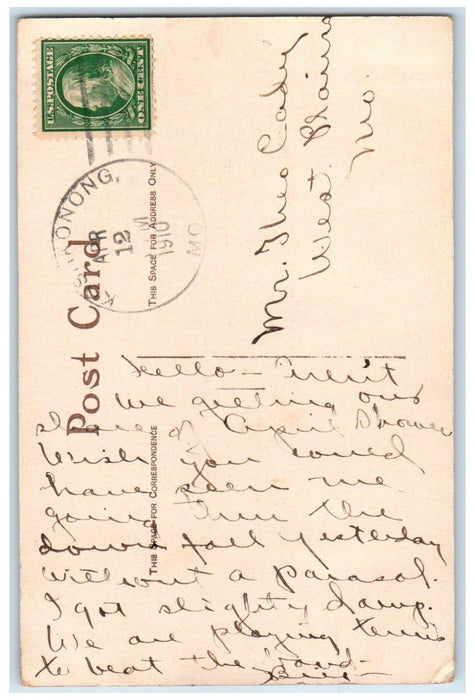 U.S. POSTAGE
ONE CENT
KOSHKONONG,
APR
12
M
1910
MO.
Post Card
THIS SPACE FOR ADDRESS ONLY
Mr. Theo Cady
West Plains
Mo.
THIS SPACE FOR CORRESPONDENCE
Hello – Aren't
we getting our
share of April Shower
Wish you could
have seen me
going thru the
down fall yesterday
without a parasol.
I got slightly damp.
We are playing tennis
to beat the band –